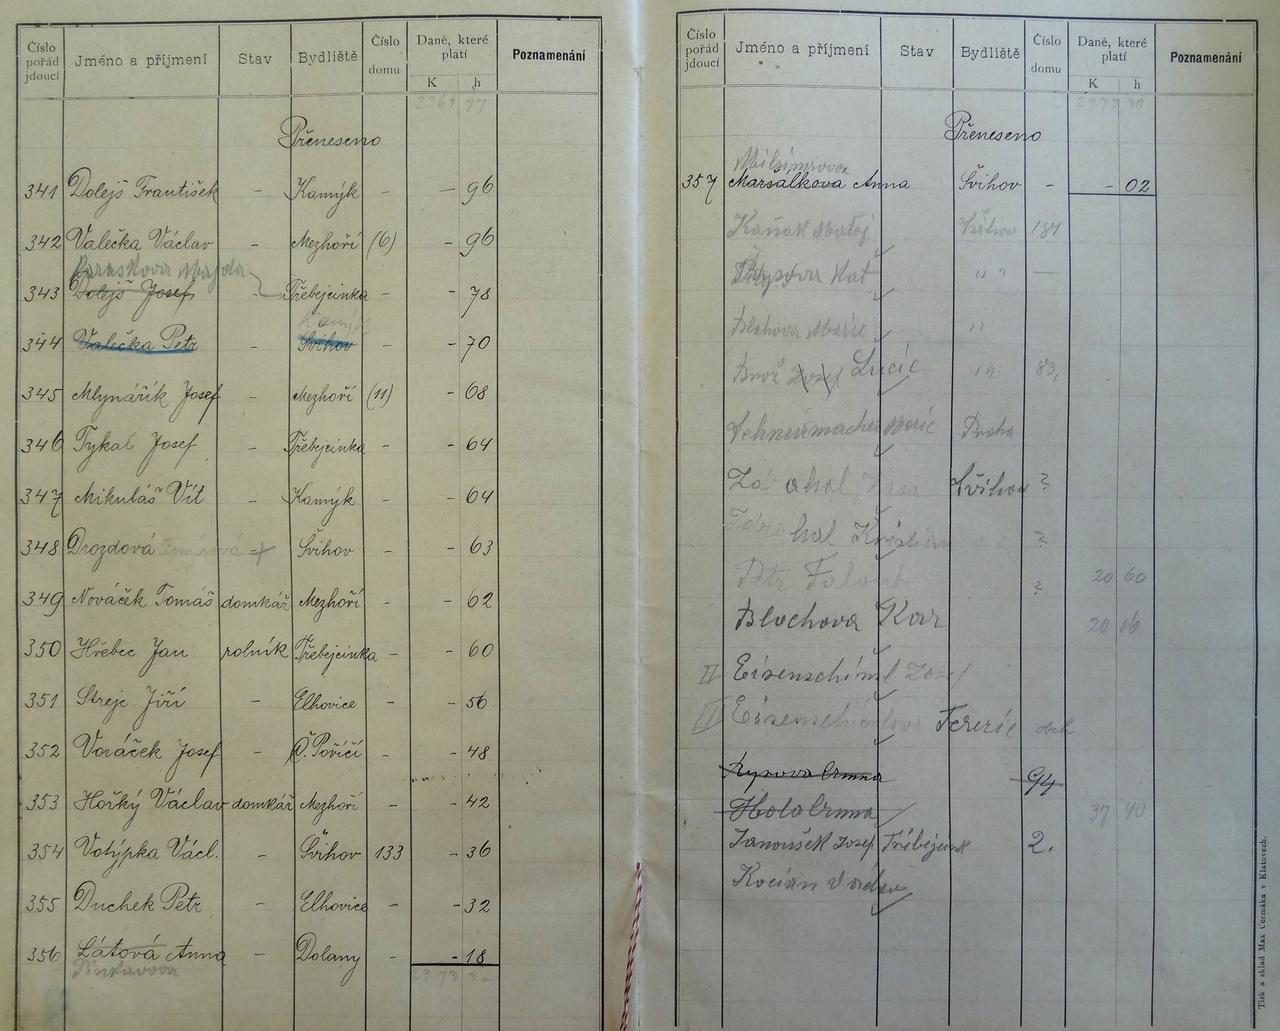 Číslo pořád jdoucí Jméno a příjmení Stav Bydliště Číslo domu Daně, které platí K h Poznamenání
2369 77
Přeneseno
341 Dolejš František – Kamýk – 96
342 Valečka Václav – Mezhoří (6) – 96
343 Dolejš Josef – Třebejcinka – – 78
Kamýk
344 Valečka Petr – Švihov – – 70
345 Mlynářík Josef – Mezhoří (11) – 68
346 Tykal Josef – Třebejcinka – – 64
347 Mikuláš Vít – Kamýk – – 64
348 Drozdová Švihov – – 63
349 Nováček Tomáš domkář Mezhoří – – 62
350 Hřebec Jan rolník Třebejcinka – – 60
351 Strejc Jiří – Elhovice – – 56
352 Voráček Josef – Č. Poříčí – – 48
353 Hořký Václav domkář Mezhoří – – 42
354 Votýpka Václ. – Švihov 133 – 36
355 Duchek Petr – Elhovice – – 32
356 Látová Anna – Dolany – – 18
Pinkavova
2373 30
Číslo pořád jdoucí Jméno a příjmení Stav Bydliště Číslo domu Daně, které platí K h Poznamenání
2373 30
Přeneseno
357 Maršálkova Anna Švihov – – 02
Kaňák Matěj Švihov 184
Kat " " —
Blahova Marie "
Brož Josef Lucie 83,
Marie Praha
Jan Švihov ?
?
Petr ? 20 60
Blochova Kar 20 16
II Eisenschiml Josef
III Terezie
Rysova Anna 94
Anna 37 40
Janoušek Josef Třebejcink 2.
Kocián
Tisk a sklad Max Čermáka v Klatovech.